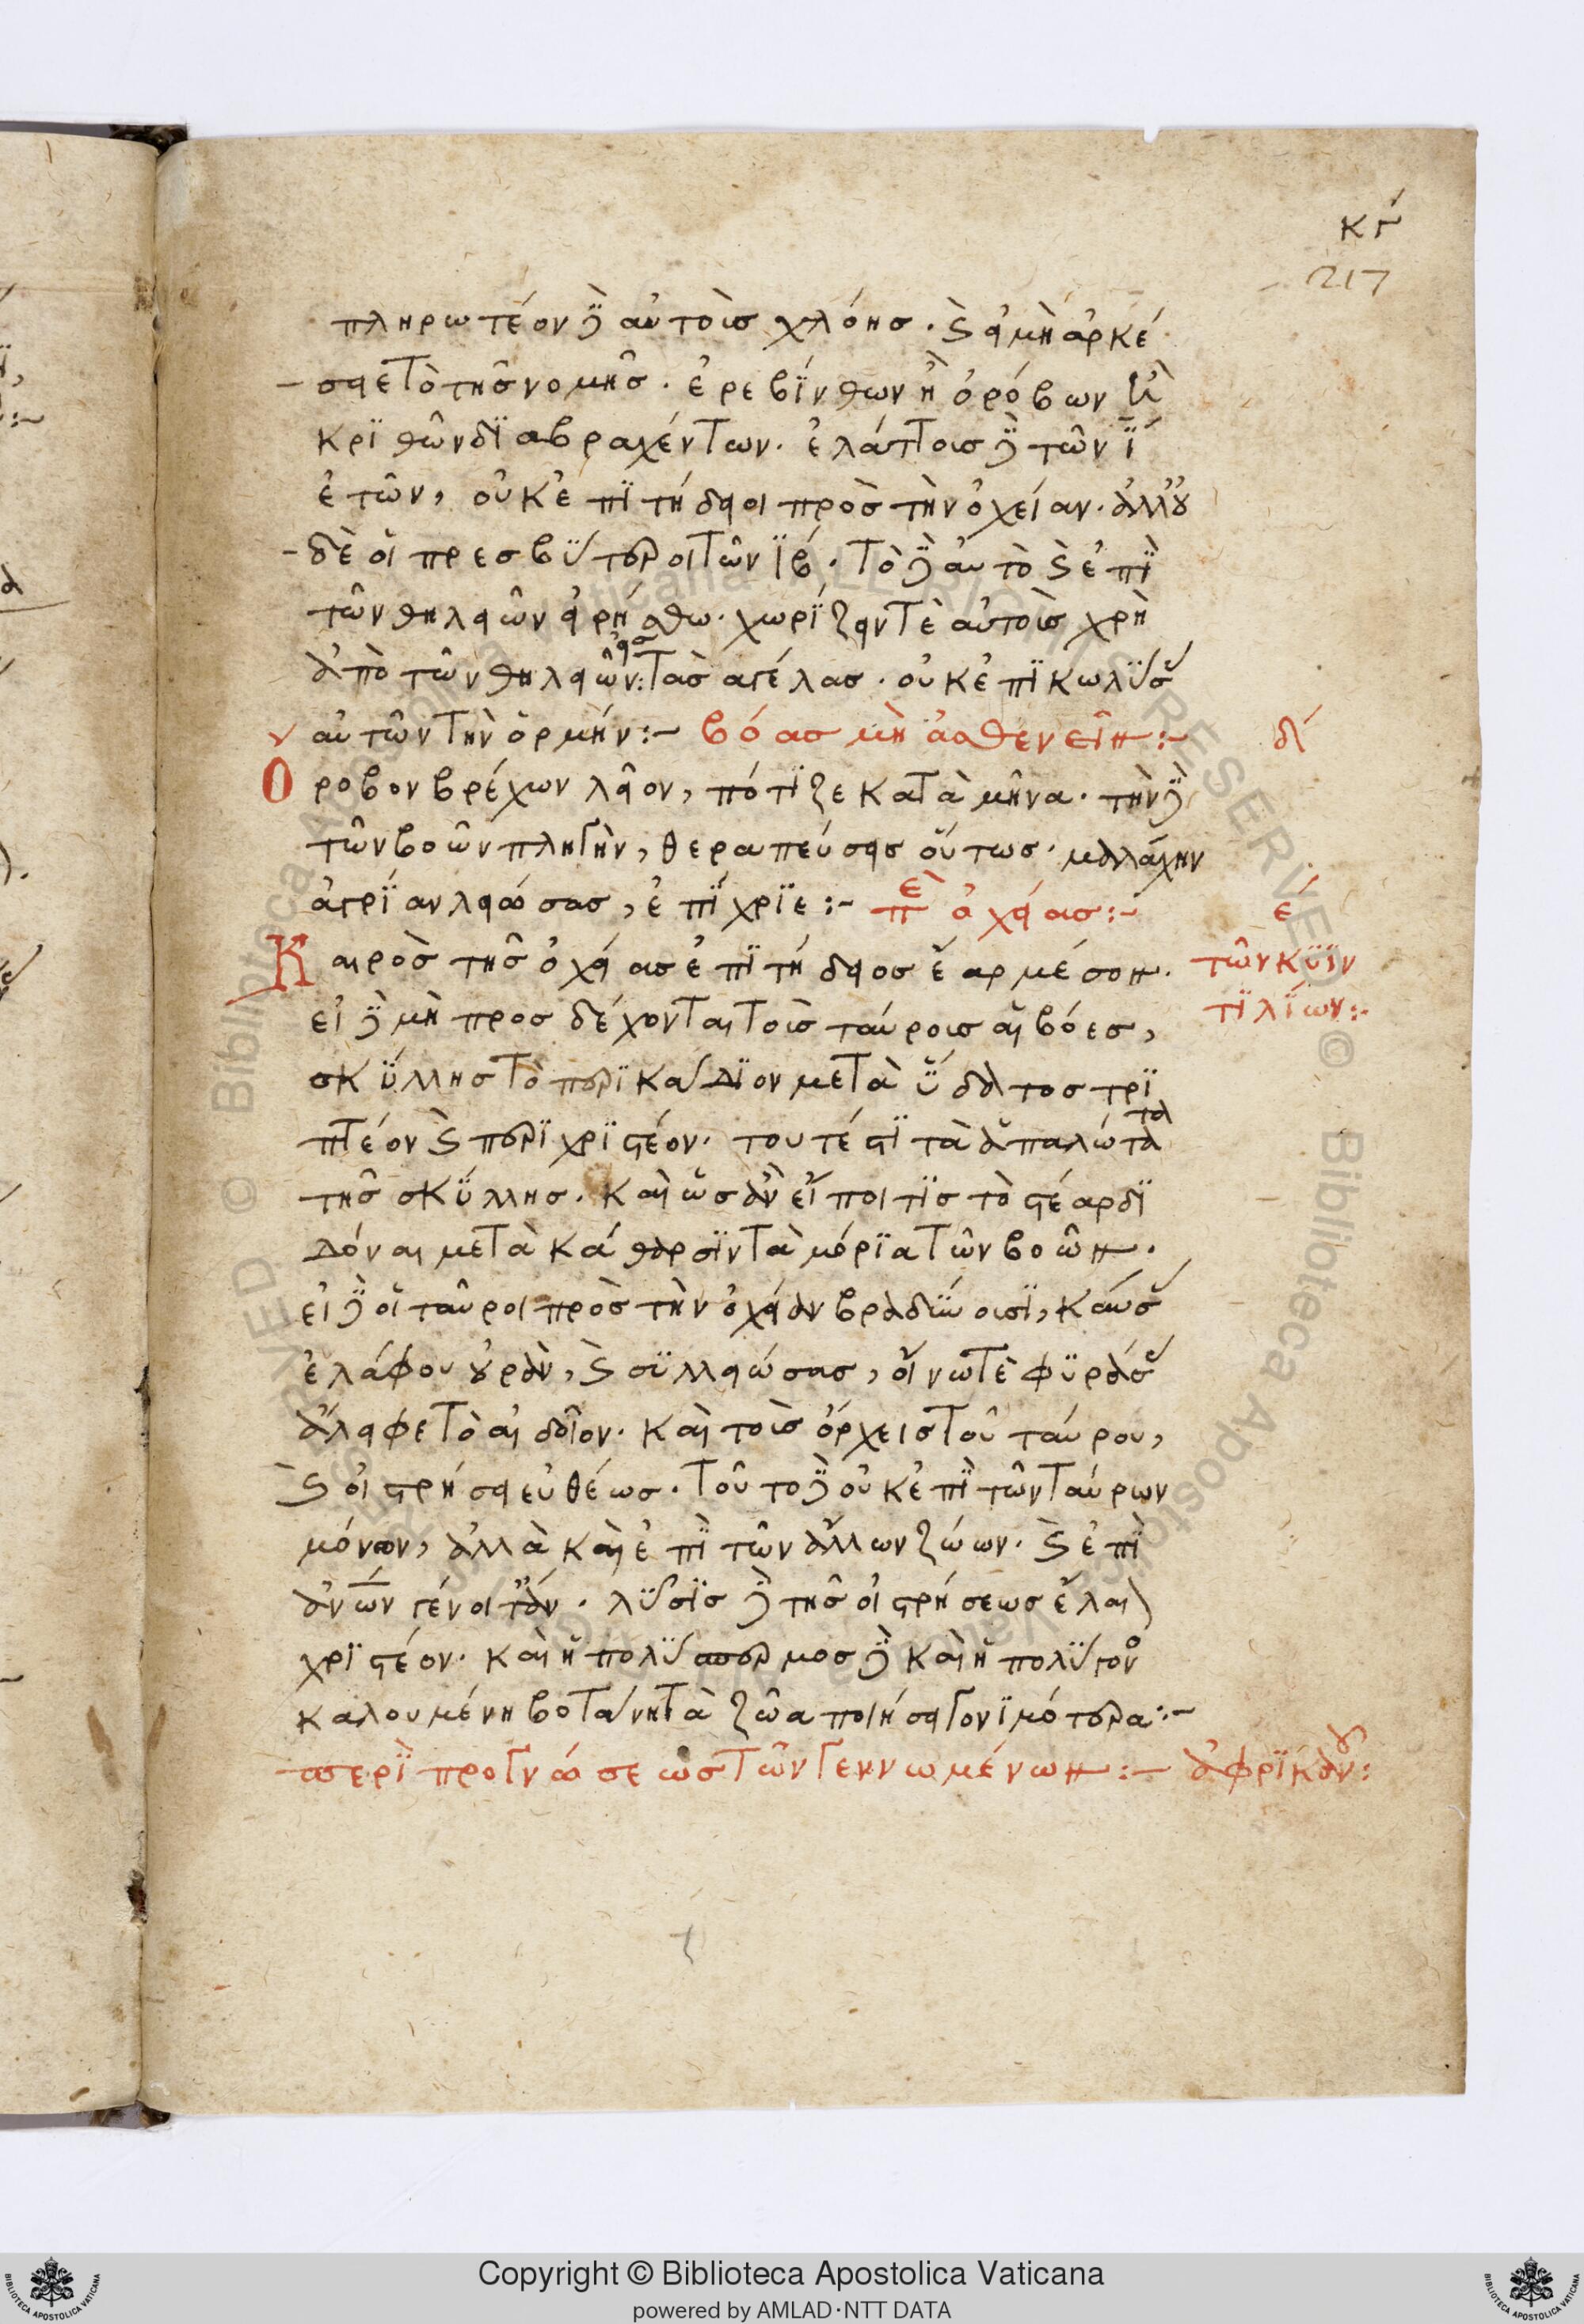 κγ́
217
πληρωτέον δὲ αὐτοὺσ χλόησ · καὶ εἰ μὴ ἀρκέ
σειε τὸ τῆσ νομῆσ · ἐρεβΐνθων ἢ ὀρόβων ἢ
κρϊθῶν δϊαβραχέντων · ἐλάττοισ δὲ τῶν ΐ
ἐτῶν, οὐκ ἐπϊτήδειοι πρὸσ τὴν ὀχείαν · ἀλλ' οὐ
δὲ οἱ πρεσβΰτεροι τῶν ϊβ́ · τὸ δὲ αὐτὸ καὶ ἐπῒ
τῶν θηλειῶν εἰρήσθω · χωρΐζειν τὲ αὐτοὺσ χρὴ
ἀπὸ τῶν θηλειῶν : τὰσ ἀγέλασ · οὐκ ἐπϊκωλΰεϊν
αὐτῶν τὴν ὁρμήν :~ βόασ μὴ ἀσθενεῖν :~ δ́
Οροβον βρέχων λεῖον, πότϊζε κατὰ μῆνα · τὴν δὲ
τῶν βοῶν πληγὴν, θεραπεύσεισ οὕτωσ · μαλάχην
ἀγρΐαν λειώσασ, ἐπΐχρϊε :~ περὶ ὀχείασ :~ έ
Καιρὸσ τῆσ ὀχείασ ἐπϊτήδειοσ ἔαρ μέσον · τῶν κϋϊν
εἰ δὲ μὴ προσδέχονται τοὺσ ταύρουσ αἱ βόεσ, τϊλΐων :~
σκΰλλησ τὸ περϊκάρδϊον μετὰ ὕδατοσ τρϊ
πτέον καὶ περϊχρϊστέον · τουτέστϊ τὰ ἁπαλώτατα
τῆσ σκΰλλησ · καὶ ὡσ ἂν εἴποι τϊσ τὸ στέαρ δϊ
δόναι μετὰ κάθαρσϊν τὰ μόρϊα τῶν βοῶν ·
εἰ δὲ οἱ ταῦροι πρὸσ τὴν ὀχείαν βραδΰουσϊ, καύσασ
ἐλάφου οὐρὰν, καὶ σϋλλειώσασ, οἴνω τὲ φϋράσασ
ἄλειφε τὸ αἰδοῖον · καὶ τοὺσ ὄρχεισ τοῦ ταύρου,
καὶ οἰστρήσει εὐθέωσ · τοῦτο δὲ οὐκ ἐπῒ τῶν ταύρων
μόνον, ἀλλὰ καὶ ἐπῒ τῶν ἄλλων ζώων · καὶ ἐπῒ
ἀνων γένοιτ' ἄν · λΰσϊσ δὲ τῆσ οἰστρήσεωσ ἔλαιον
χρϊστέον · καὶ ἡ πολΰσπερμοσ δὲ καὶ ἡ πολΰγονοσ
καλουμένη βοτάνη τὰ ζῶα ποιήσει γονϊμότερα :~
περῒ προγνώσεωσ τῶν γεννωμένων :~ ἀφρϊκάνου :